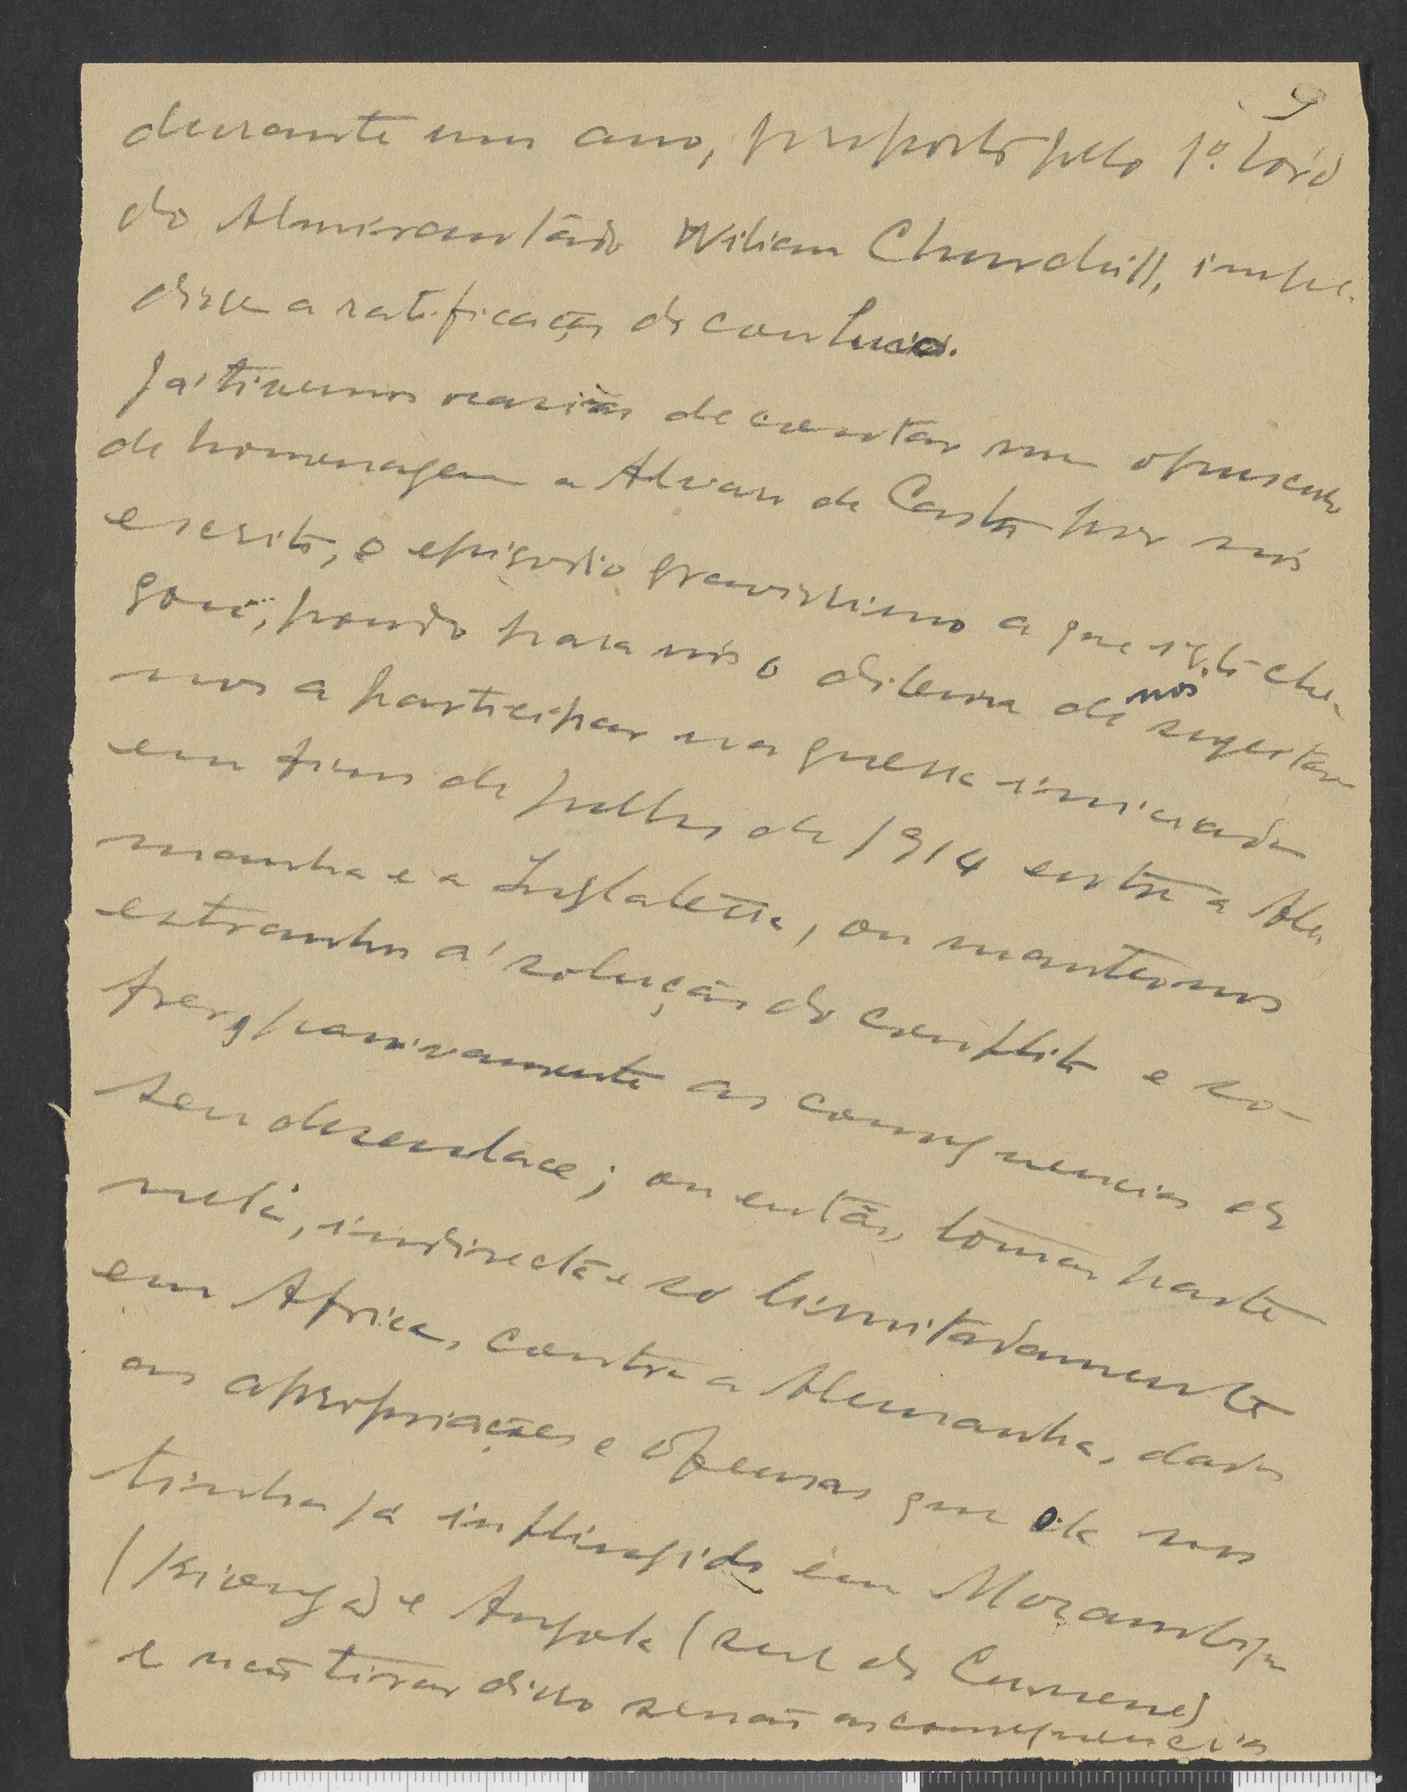 9
durante um ano, proposto pelo 1º. Lord
do Almirantado Wiliam Churchill, impe-
disse a ratificação do conluio.
Já tivemos ocasião de contar num opusculo
de homenagem a Alvaro de Castro por nós
escrito, o episodio gravissimo a que isto che-
gou, pondo para nós o dilema de nós sugeitar-
mos a participar na guerra iniciada
em fins de julho de 1914 entre a Ale-
manha e a Inglaterra, ou mantermos
extranhos á solução do conflito e so-
frer passivamente as consequencias do
seu desenlace; ou então, tomar parte
nela, indirecta e só limitadamente
em Africa, contra a Alemanha, dadas
as apropriações e ofensas que ela nos
tinha já inflingido em Mozambique
(Kionga) e Angola (sul do Cunene)
e não tirar disso senão as consequencias